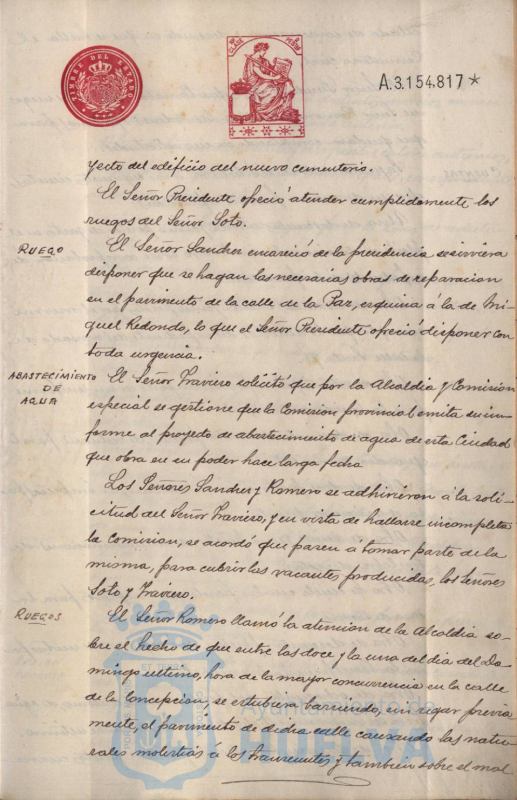 TIMBRE DEL ESTADO
A.3.154.817*
yecto del edificio del nuevo cementerio.
El Señor Presidente ofreció atender cumplidamente los
ruegos del Señor Soto.
RUEGO
El Señor Sanchez encareció de la presidencia se sirviera
disponer que se hagan las necesarias obras de reparacion
en el pavimento de la calle de la Paz, esquina á la de Mi-
guel Redondo, lo que el Señor Presidente ofreció disponer con
toda urgencia.
ABASTECIMIENTO
DE
AGUA
El Señor Traviero solicitó que por la Alcaldia y Comision
especial se gestione que la Comision provincial emita su in-
forme al proyecto de abastecimiento de agua de esta Ciudad
que obra en su poder hace larga fecha
Los Señores Sanchez y Romero se adhirieron á la soli-
citud del Señor Traviero, y en vista de hallarse incompleta
la Comision, se acordó que pasen á tomar parte de la
misma, para cubrir las vacantes producidas, los Señores
Soto y Traviero.
RUEGOS
El Señor Romero llamó la atencion de la Alcaldia so-
bre el hecho de que entre las doce y la una del dia del Do-
mingo ultimo, hora de la mayor concurrencia en la calle
de la Concepcion, se estubiera barriendo, sin regar previa-
mente, el pavimento de dicha calle causando las natu-
rales molestias á los transeuntes y tambien sobre el mal
Ayuntamiento de
HUELVA